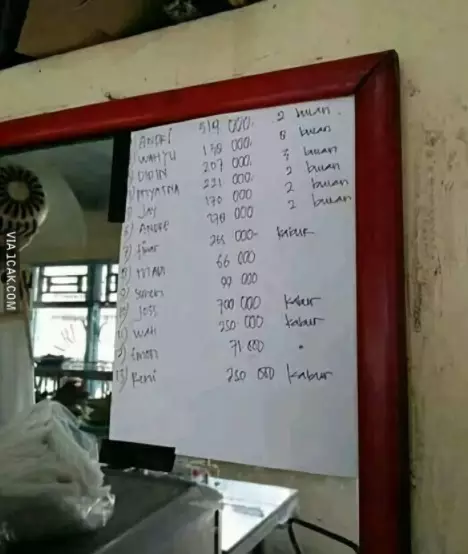 1) ANDRI 519 000, 2 bulan.
2) WAHYU 138 000, 8 bulan
3) DIDIN 207 000, 3 bulan
221 000, 2 bulan
5) JAY 170 000 2 bulan
6) ANDRE 278 000 2 bulan
7) 265 000- kabur
8) IMAM 66 000
9) 99 000
10) JOSS 700 000 kabur
11) Wati 250 000 kabur
12) Emon 71 000
13) Remi 250 000 kabur
VIA 1CAK.COM